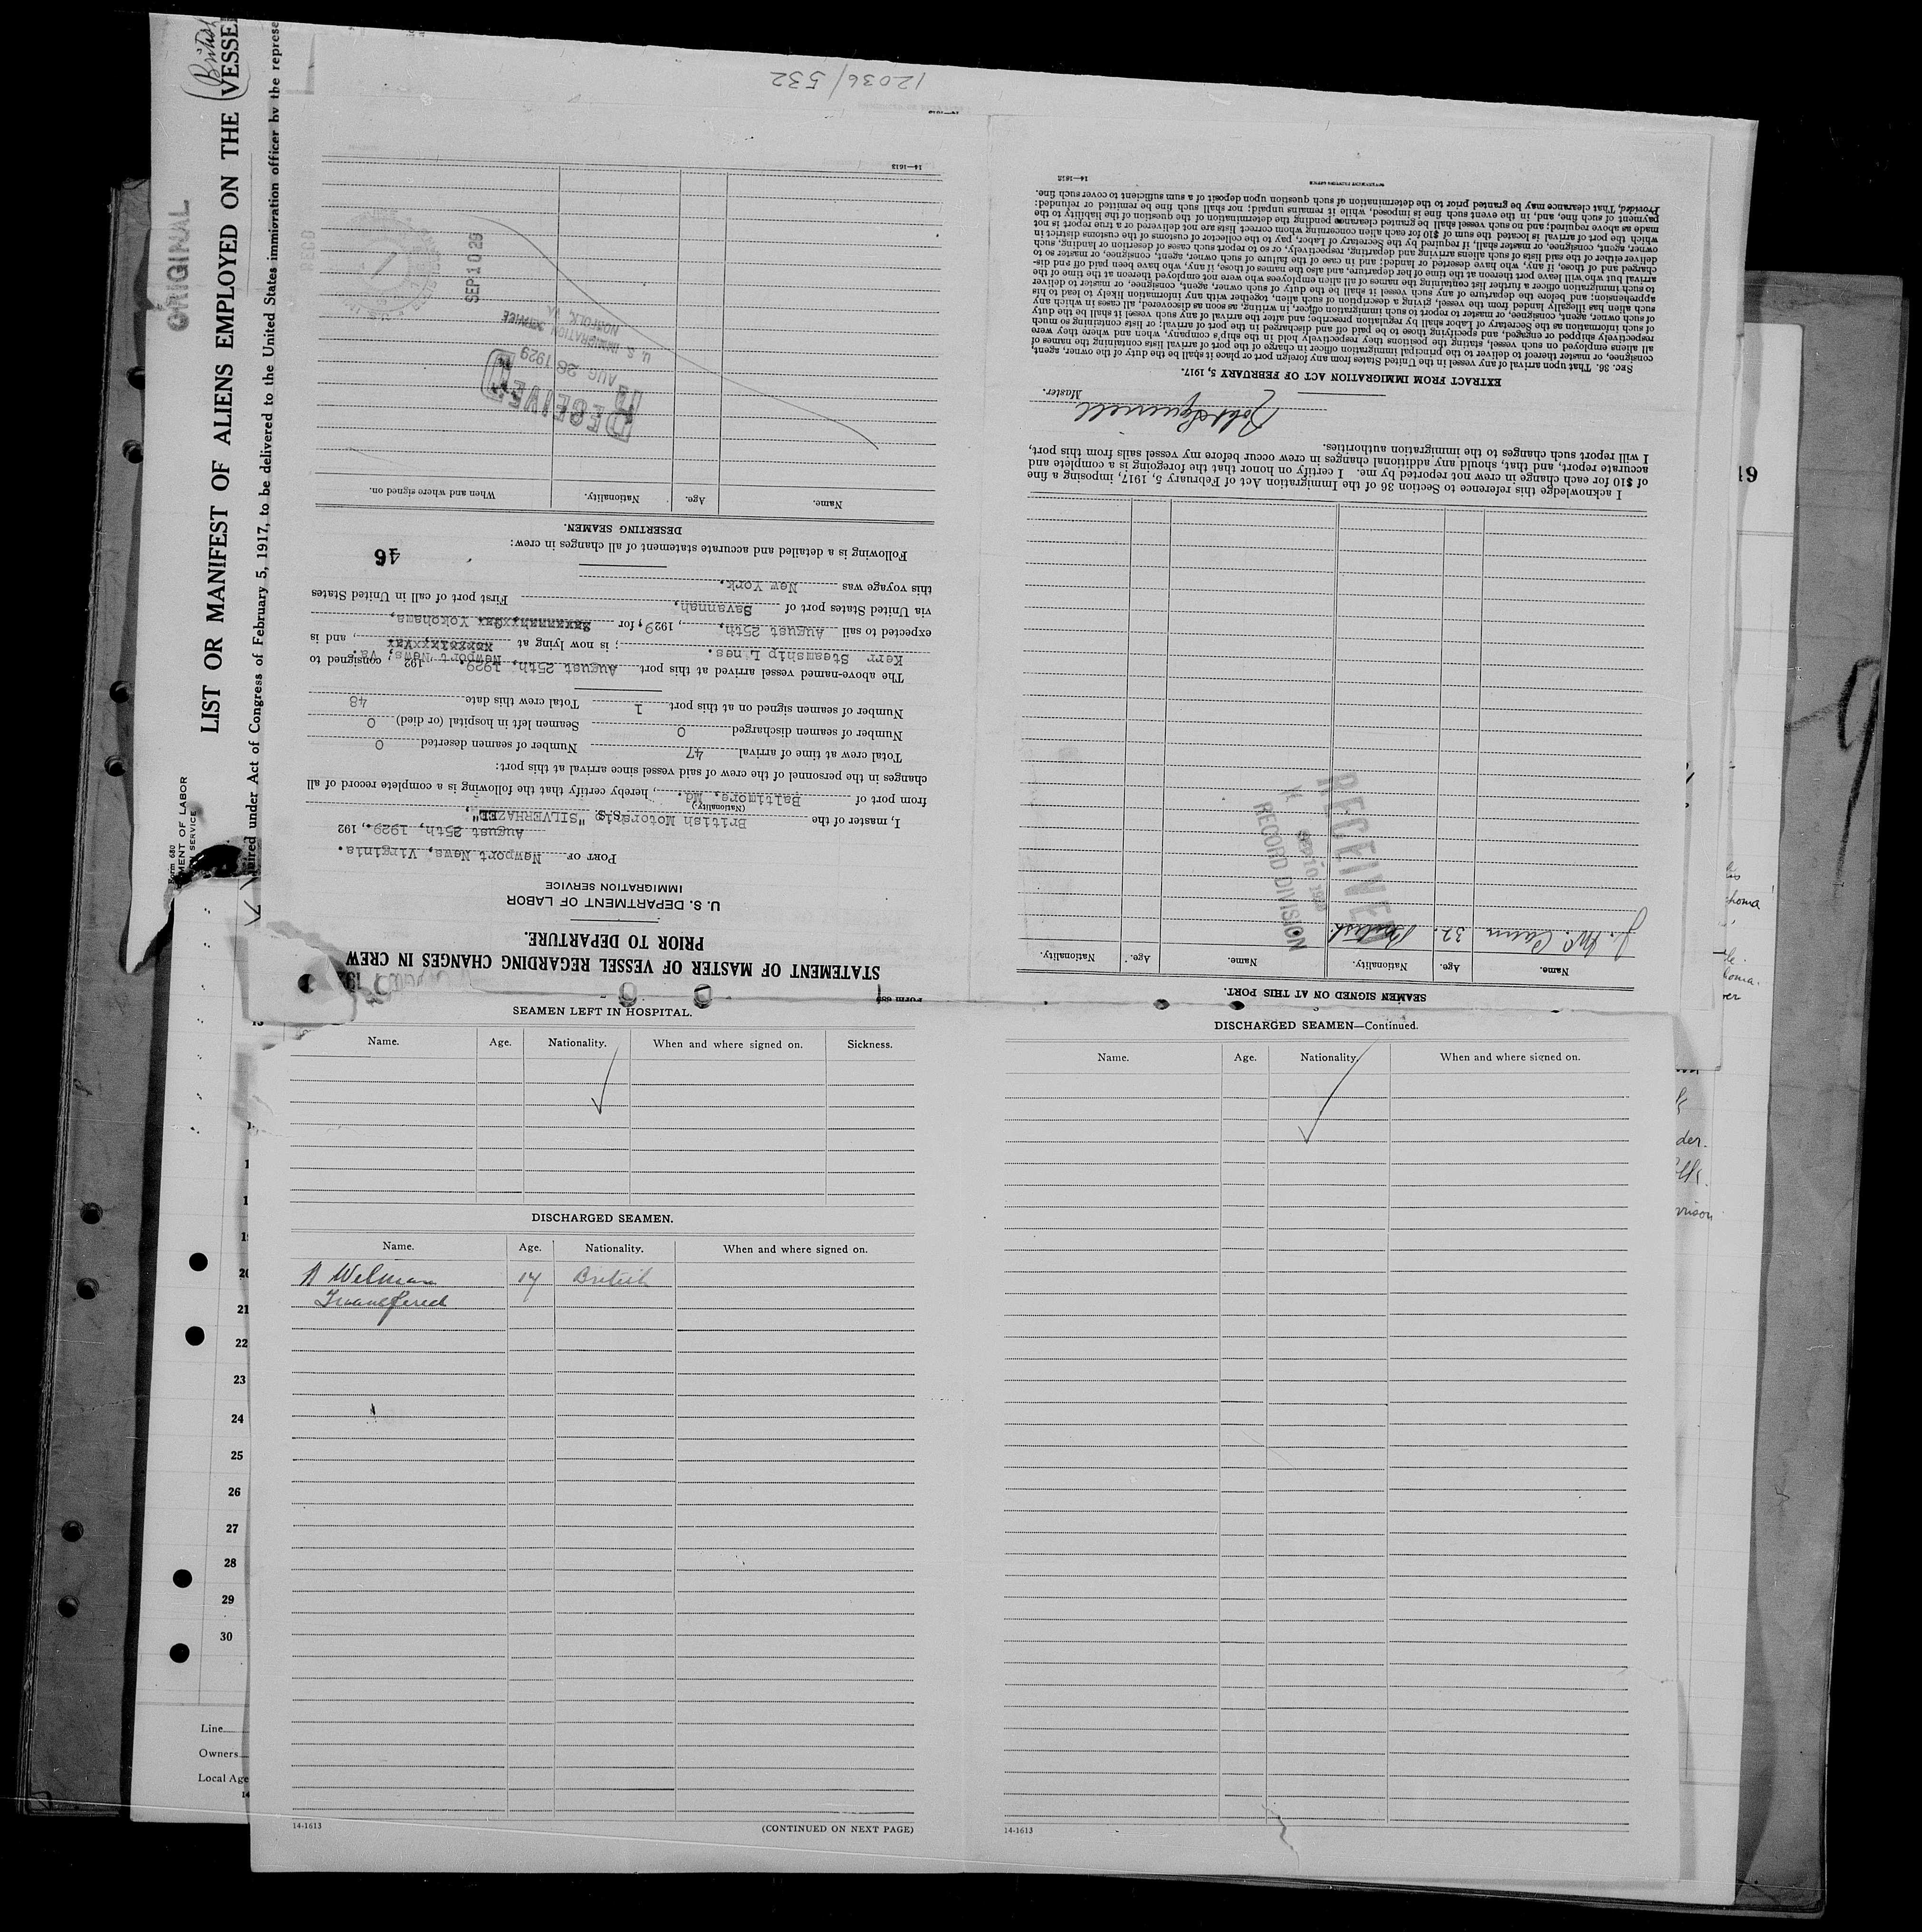 12036/532
ORIGINAL
LIST OR MANIFEST OF ALIENS EMPLOYED ON THE VESSEL
British
uired under Act of Congress of February 5, 1917, to be delivered to the United States immigration officer by the represe
Form 680
MENT OF LABOR
N SERVICE
STATEMENT OF MASTER OF VESSEL REGARDING CHANGES IN CREW
PRIOR TO DEPARTURE.
U. S. DEPARTMENT OF LABOR
IMMIGRATION SERVICE
PORT OF Newport News, Virginia.
August 25th, 1929., 192
I, master of the British Motorship "SILVERHAZEL",
(Nationality)
from port of Baltimore, Md., hereby certify that the following is a complete record of all
changes in the personnel of the crew of said vessel since arrival at this port:
Total crew at time of arrival 47 Number of seamen deserted 0
Number of seamen discharged 0 Seamen left in hospital (or died) 0
Number of seamen signed on at this port 1 Total crew this date 48
The above-named vessel arrived at this port August 25th, 1929 192 consigned to
Kerr Steamship Lines. ; is now lying at Newport News, Va. , and is
expected to sail August 25th, , 1929, for Yokohama,
via United States port of Savannah, First port of call in United States
this voyage was New York.
46
Following is a detailed and accurate statement of all changes in crew:
DESERTING SEAMEN.
Name. Age. Nationality. When and where signed on.
RECEIVED
AUG 26 1929
U. S. IMMIGRATION SERVICE
NORFOLK, VA.
SEP 10 29
RECD
14—1613
SEAMEN SIGNED ON AT THIS PORT.
Name. Age. Nationality. Name. Age. Nationality.
J. Mc. Cann 32. British
RECEIVED
SEP 10 1929
RECORD DIVISION
I acknowledge this reference to Section 36 of the Immigration Act of February 5, 1917, imposing a fine
of $10 for each change in crew not reported by me. I certify on honor that the foregoing is a complete and
accurate report, and that, should any additional changes in crew occur before my vessel sails from this port,
I will report such changes to the immigration authorities.
Master.
EXTRACT FROM IMMIGRATION ACT OF FEBRUARY 5, 1917.
Sec. 36. That upon arrival of any vessel in the United States from any foreign port or place it shall be the duty of the owner, agent,
consignee, or master thereof to deliver to the principal immigration officer in charge of the port of arrival lists containing the names of
all aliens employed on such vessel, stating the positions they respectively hold in the ship's company, when and where they were
respectively shipped or engaged, and specifying those to be paid off and discharged in the port of arrival; or lists containing so much
of such information as the Secretary of Labor shall by regulation prescribe; and after the arrival of any such vessel it shall be the duty
of such owner, agent, consignee, or master to report to such immigration officer, in writing, as soon as discovered, all cases in which any
such alien has illegally landed from the vessel, giving a description of such alien, together with any information likely to lead to his
apprehension; and before the departure of any such vessel it shall be the duty of such owner, agent, consignee, or master to deliver
to such immigration officer a further list containing the names of all alien employees who were not employed thereon at the time of the
arrival but who will leave port thereon at the time of her departure, and also the names of those, if any, who have been paid off and dis-
charged and of those, if any, who have deserted or landed; and in case of the failure of such owner, agent, consignee, or master so to
deliver either of the said lists of such aliens arriving and departing, respectively, or so to report such cases of desertion or landing, such
owner, agent, consignee, or master shall, if required by the Secretary of Labor, pay to the collector of customs of the customs district in
which the port of arrival is located the sum of $10 for each alien concerning whom correct lists are not delivered or a true report is not
made as above required; and no such vessel shall be granted clearance pending the determination of the question of the liability to the
payment of such fine, and, in the event such fine is imposed, while it remains unpaid; nor shall such fine be remitted or refunded:
Provided, That clearance may be granted prior to the determination of such question upon deposit of a sum sufficient to cover such fine.
14—1613
GOVERNMENT PRINTING OFFICE
SEAMEN LEFT IN HOSPITAL.
Name. Age. Nationality. When and where signed on. Sickness.
DISCHARGED SEAMEN.
Name. Age. Nationality. When and where signed on.
A Welman 17 British
Transfered
14-1613
(CONTINUED ON NEXT PAGE)
DISCHARGED SEAMEN—Continued.
Name. Age. Nationality. When and where signed on.
14-1613
20
21
22
23
24
25
26
27
28
29
30
Line
Owners
Local Age